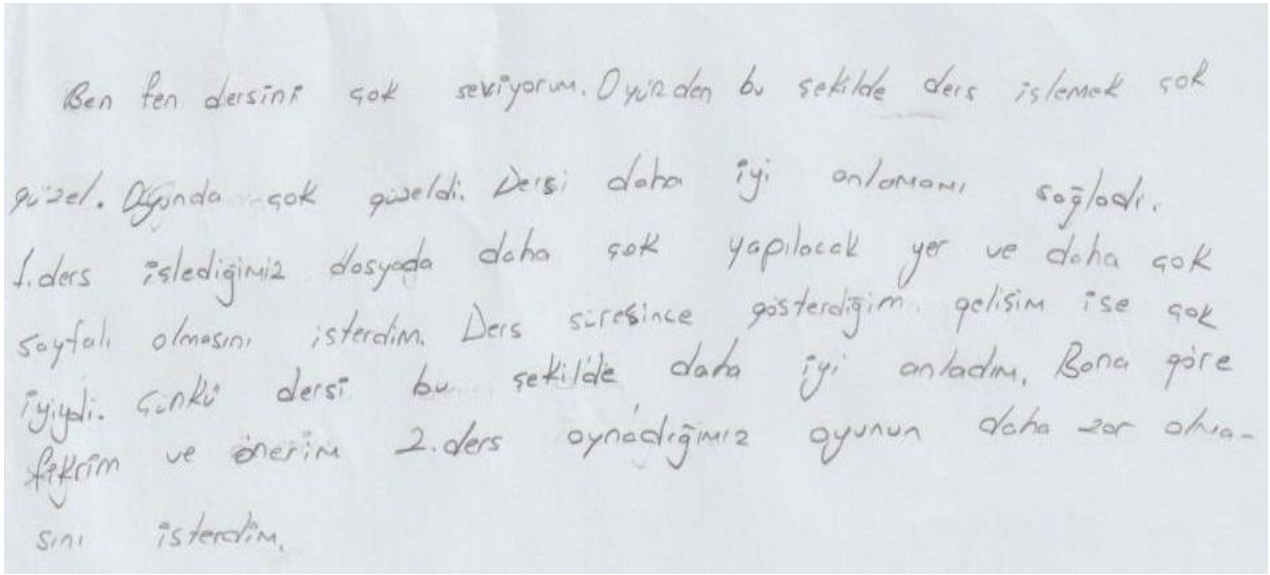 Ben fen dersini çok seviyorum. O yüzden bu şekilde ders işlemek çok
güzel. Oyunda çok güzeldi. Dersi daha iyi anlamamı sağladı.
1. ders işlediğimiz dosyada daha çok yapılacak yer ve daha çok
sayfalı olmasını isterdim. Ders süresince gösterdiğim gelişim ise çok
iyiydi. Çünkü dersi bu şekilde daha iyi anladım. Bana göre
fikrim ve önerim 2. ders oynadığımız oyunun daha zor olma-
sını isterdim.